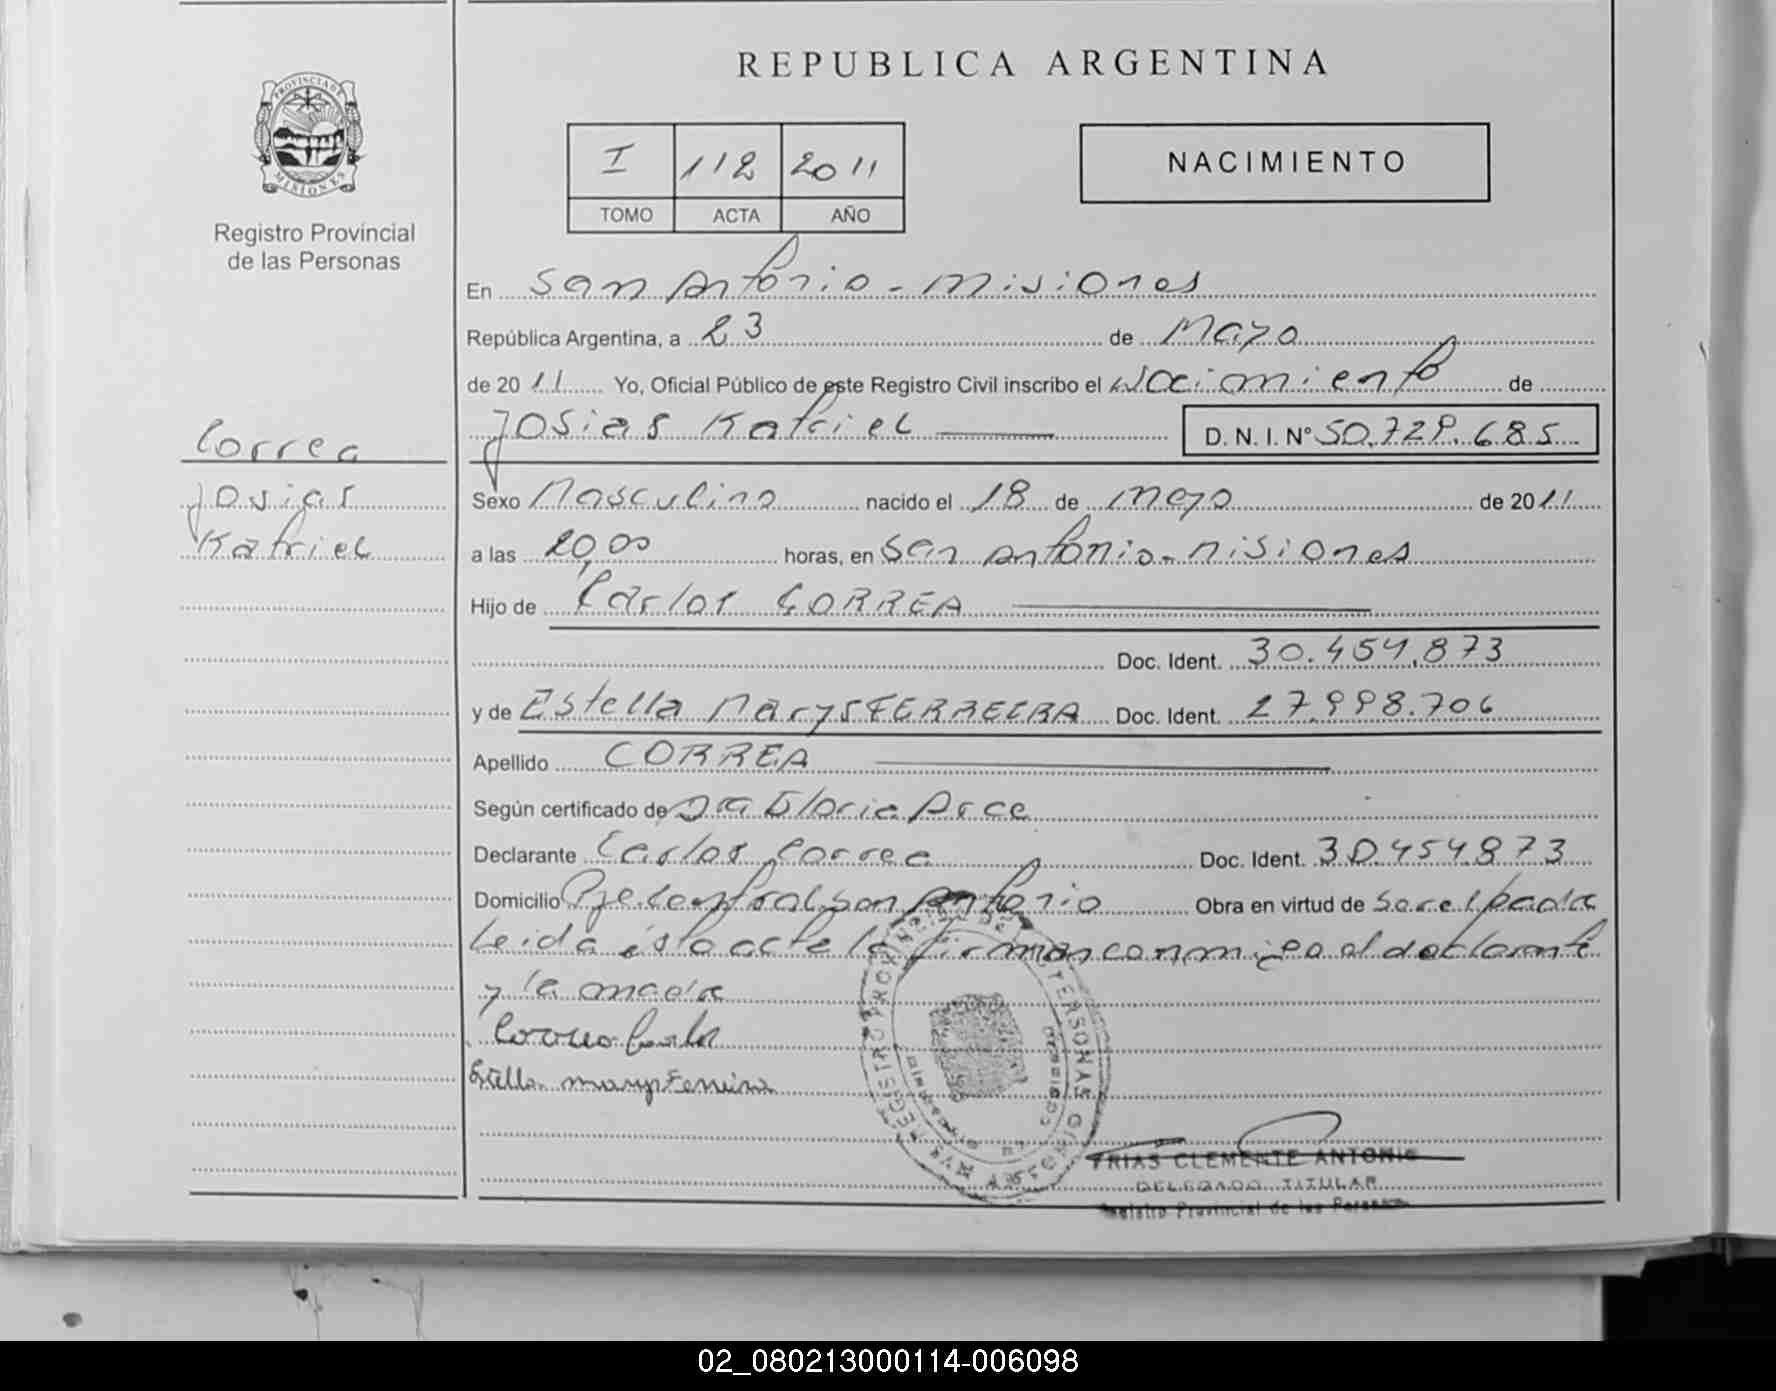 REPUBLICA ARGENTINA
PROVINCIA DE MISIONES
Registro Provincial
de las Personas
I 112 2011
TOMO ACTA AÑO
NACIMIENTO
En San Antonio - Misiones
República Argentina, a 23 de Mayo
de 2011 Yo, Oficial Público de este Registro Civil inscribo el Nacimiento de
Josias Katriel D. N. I. N° 50.729.685
Correa
Josias
Katriel
Sexo Masculino nacido el 18 de Mayo de 2011
a las 20,00 horas, en San Antonio - Misiones
Hijo de Carlos CORREA
Doc. Ident. 30.454.873
y de Estella Marys FERREIRA Doc. Ident. 27.998.706
Apellido CORREA
Según certificado de Dra Gloria Arce
Declarante Carlos Correa Doc. Ident. 30.454.873
Domicilio Pje Central San Antonio Obra en virtud de Ser el padre
Leida esta acta la firman conmigo el declarante
y la madre
Correa Carlos
Estella marys Ferreira
FRIAS CLEMENTE ANTONIO
DELEGADO TITULAR
Registro Provincial de las Personas
02_080213000114-006098